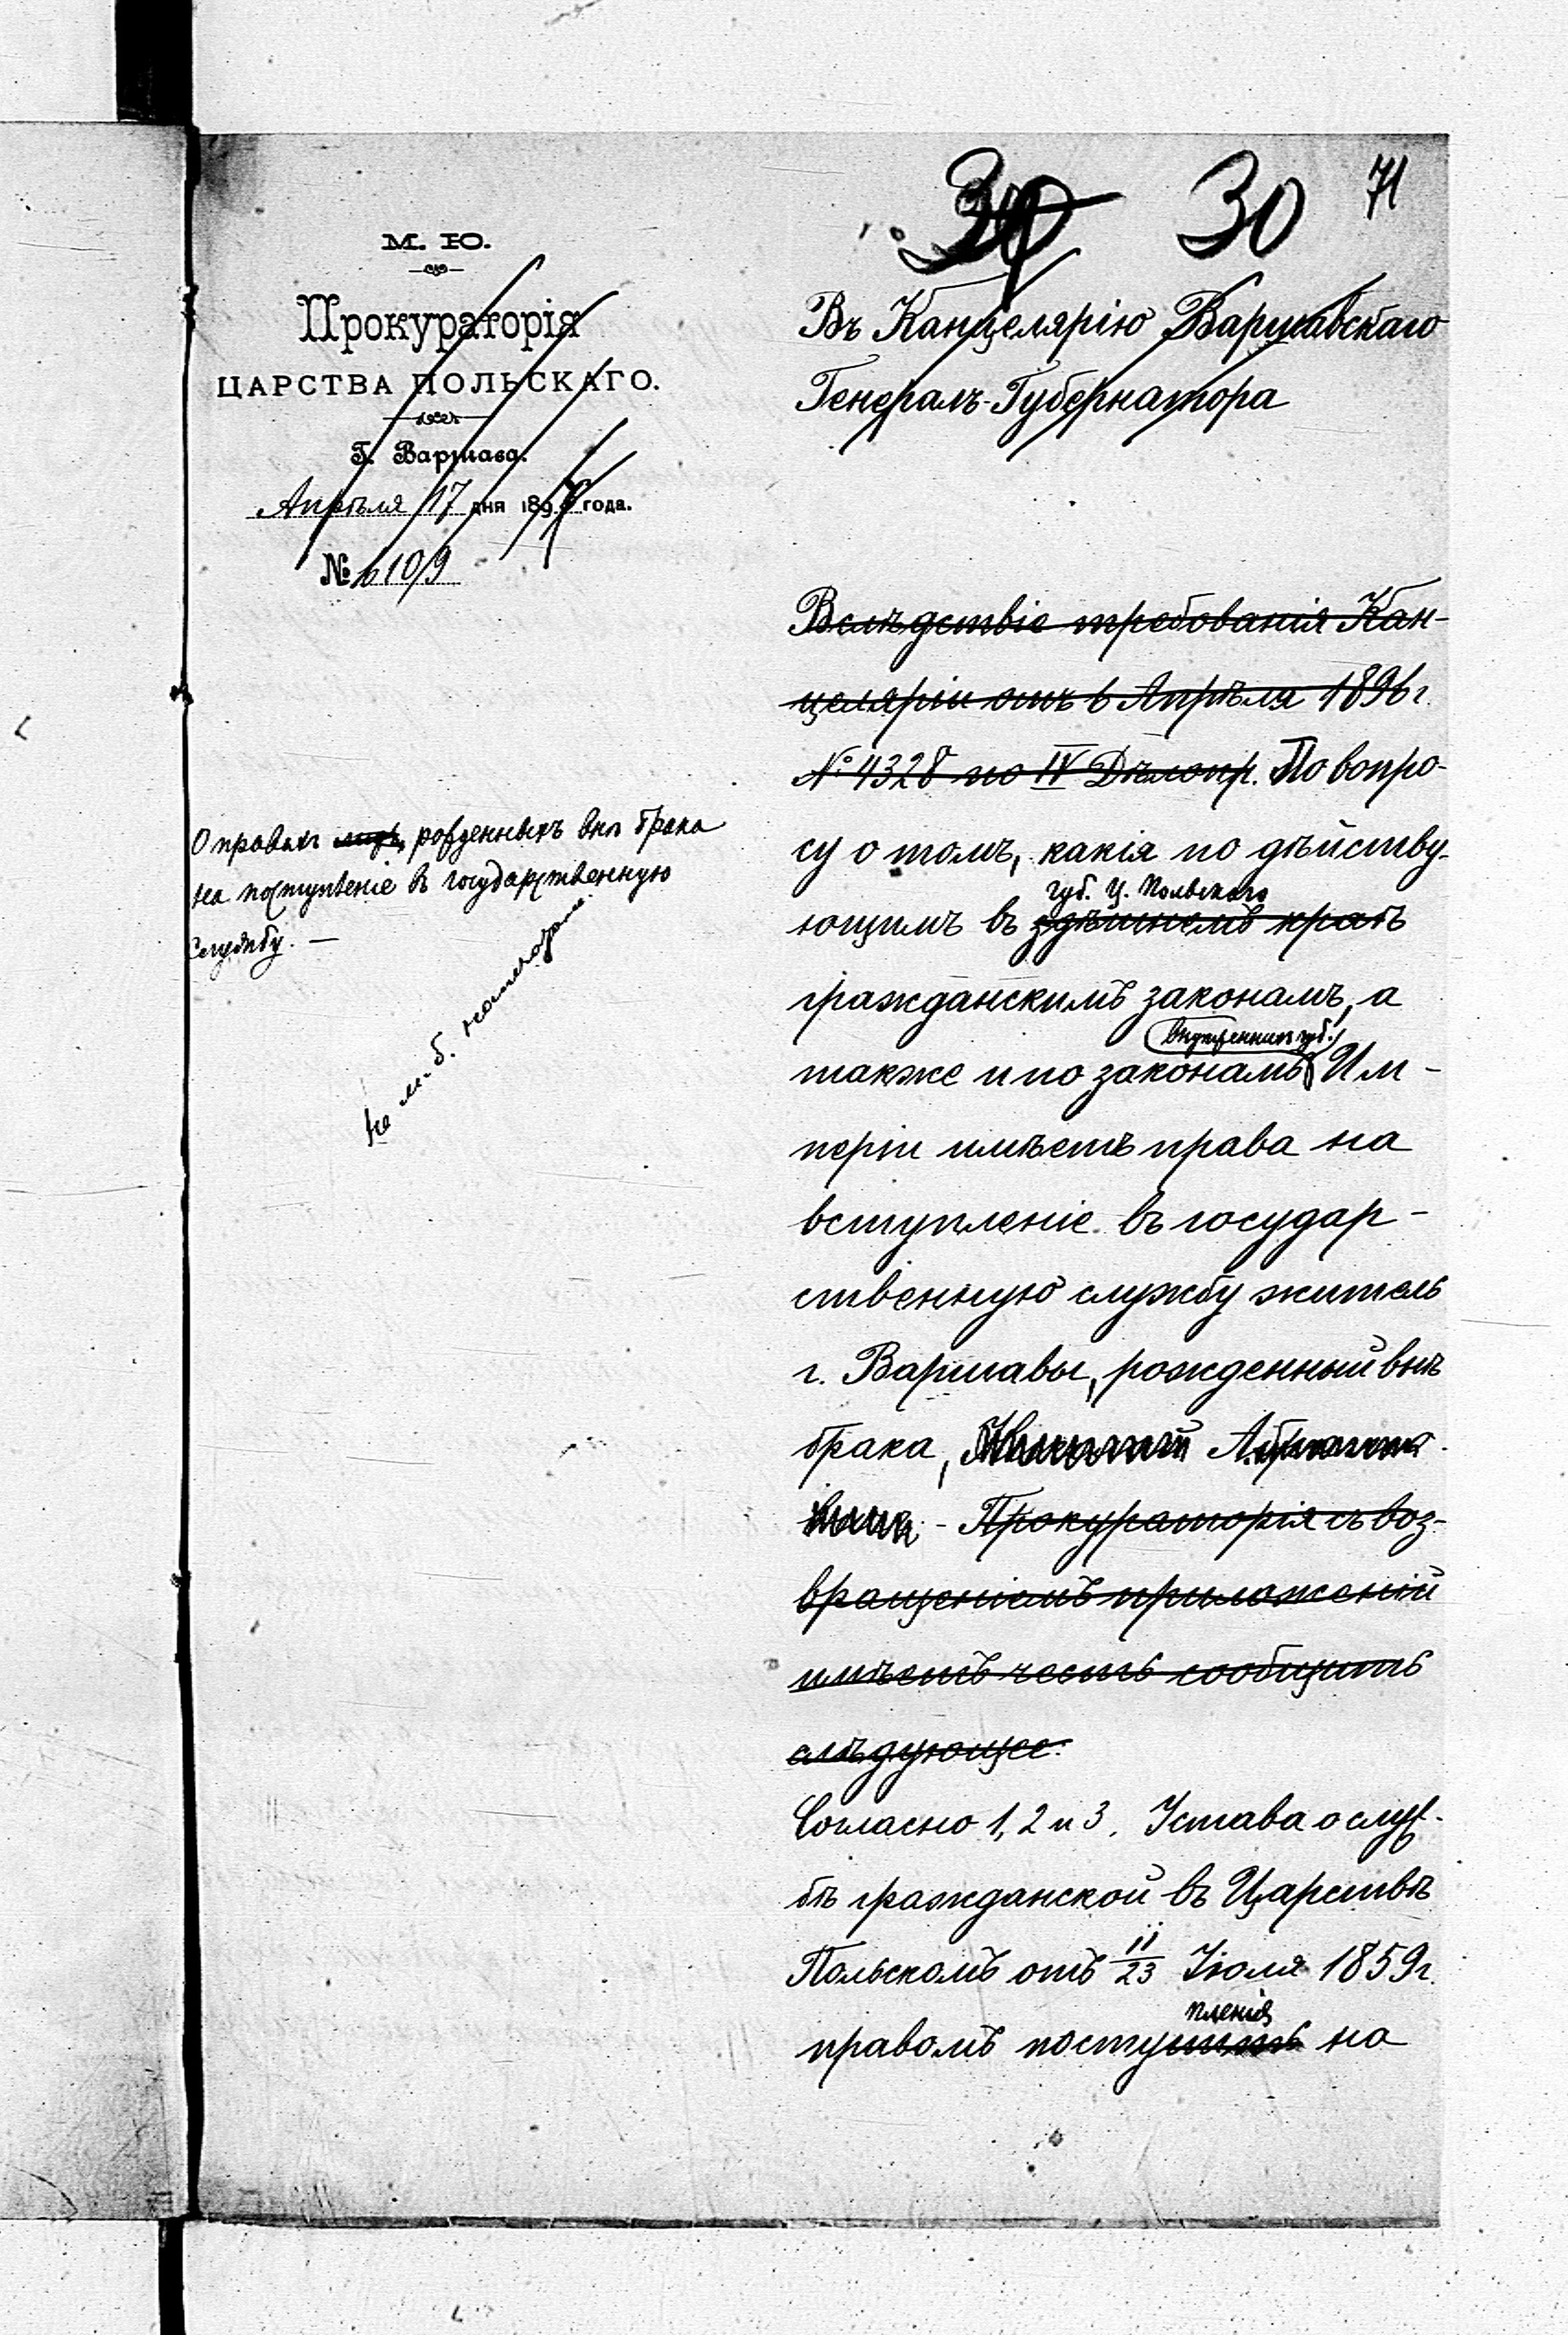 30 71
М. Ю.
Прокураторія
ЦАРСТВА ПОЛЬСКАГО.
Г. Варшава.
Апрѣля 17 дня 189 года.
№ 6109
О правахъ лицъ, рожденныхъ внѣ брака
на поступленіе въ государственную
службу. —
не м. б.
Въ Канцелярію Варшавскаго
Генералъ-Губернатора
Вслѣдствіе требованія Кан-
целяріи отъ 6 Апрѣля 1896 г.
№ 4328 по IV Дѣлопр. По вопро-
су о томъ, какія по дѣйству-
губ. Ц. Польскаго
ющимъ въ здѣшнемъ краѣ
гражданскимъ законамъ, а
внутреннихъ губ.
также и по законамъ Им-
періи имѣетъ права на
вступленіе въ государ-
ственную службу житель
г. Варшавы, рожденный внѣ
брака,
- Прокураторія съ воз-
вращеніемъ приложеній
имѣетъ честь сообщить
слѣдующее:
Согласно 1, 2 и 3. Устава о служ-
бѣ гражданской въ Царствѣ
Польскомъ отъ 11/23 Іюля 1859 г.
пленія
правомъ поступить на